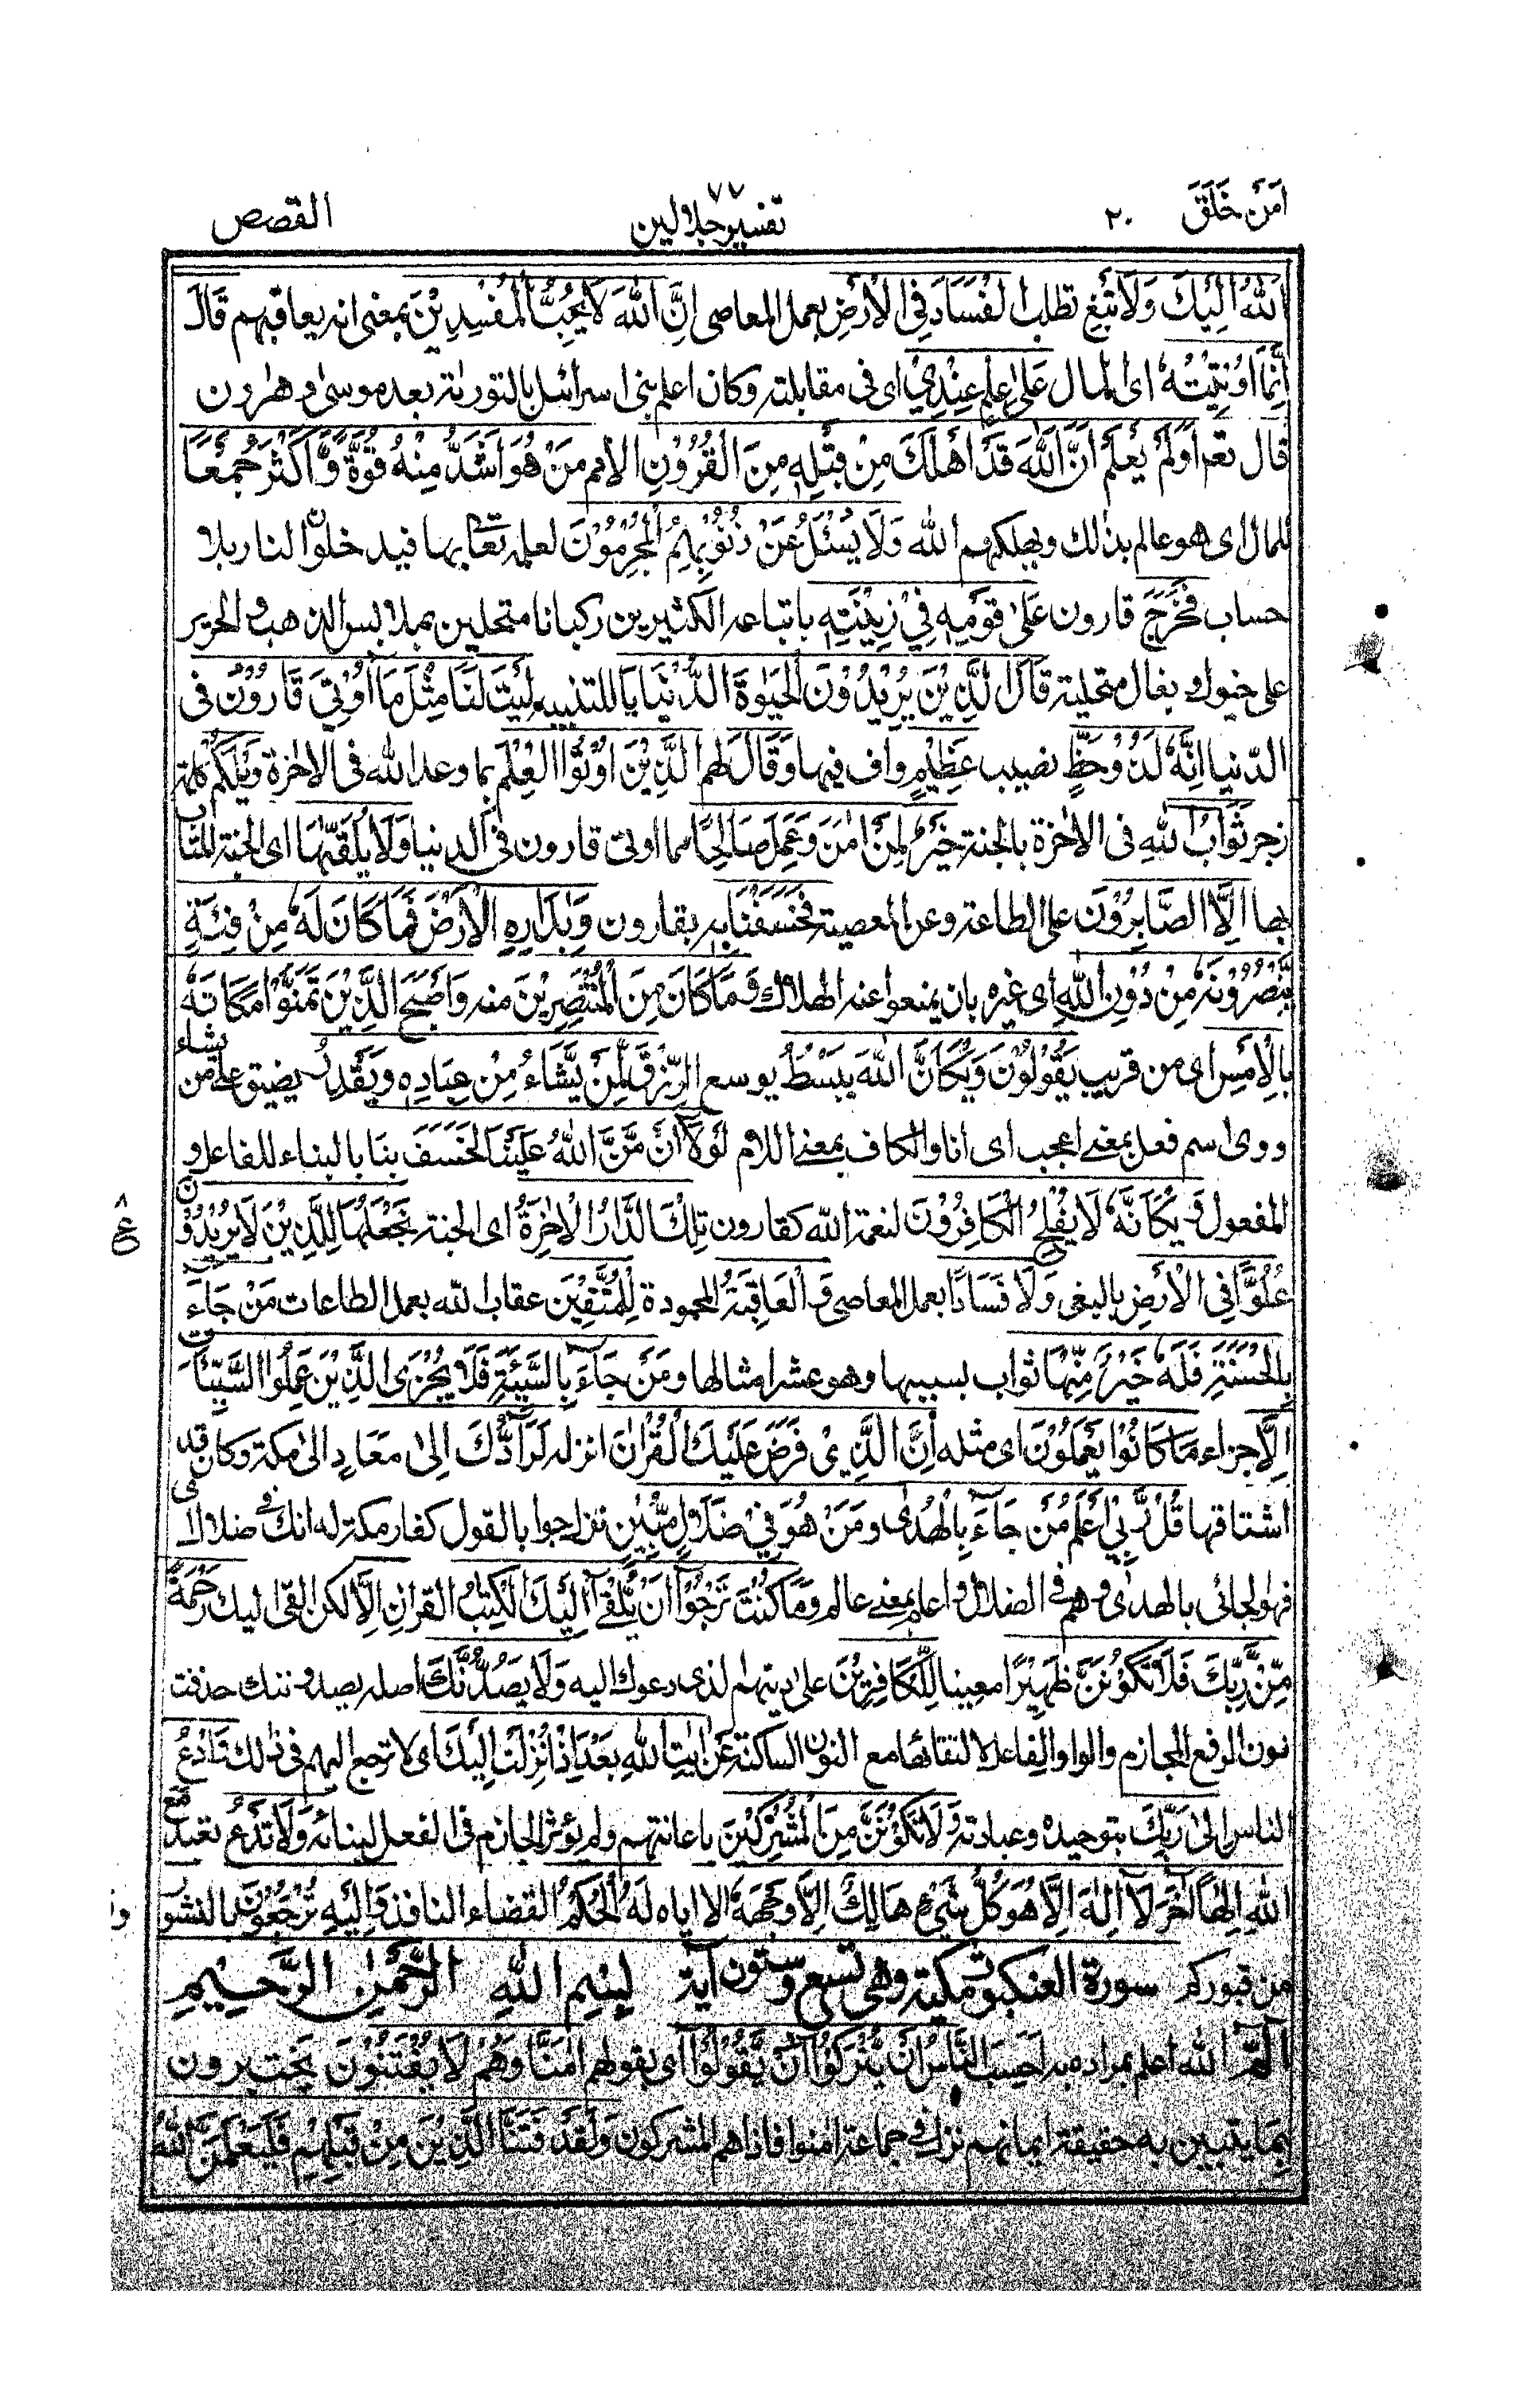 امن خلق ٢٠ تفسير جلالين ٧٧ القصص
اللهُ اِلَيْكَ وَلَا تَبْغِ تطلب الْفَسَادَ فِي الْاَرْضِ بعمل المعاصى اِنَّ اللهَ لَا يُحِبُّ الْمُفْسِدِيْنَ بمعنى انه يعاقبهم قَالَ
اِنَّمَا اُوْتِيْتُهٗ اى المال عَلٰى عِلْمٍ عِنْدِيْ اى فى مقابلته وكان اعلم بنى اسرائيل بالتورىة بعد موسى وهٰرون
قال تعم اَوَلَمْ يَعْلَمْ اَنَّ اللهَ قَدْ اَهْلَكَ مِنْ قَبْلِهٖ مِنَ الْقُرُوْنِ الامم مَنْ هُوَ اَشَدُّ مِنْهُ قُوَّةً وَّاَكْثَرُ جَمْعًا
للمال اى هو عالم بذلك ويهلكهم الله وَلَا يُسْئَلُ عَنْ ذُنُوْبِهِمُ الْمُجْرِمُوْنَ لعلمه تعالى بها فيدخلون النار بلا
حساب فَخَرَجَ قارون عَلٰى قَوْمِهٖ فِيْ زِيْنَتِهٖ باتباعه الكثيرين ركبانا متحلين بملابس الذهب والحرير
على خيول وبغال متحلية قَالَ الَّذِيْنَ يُرِيْدُوْنَ الْحَيٰوةَ الدُّنْيَا يا للتنبيه لَيْتَ لَنَا مِثْلَ مَا اُوْتِيَ قَارُوْنُ فى
الدنيا اِنَّهٗ لَذُوْ حَظٍّ نصيب عَظِيْمٍ واف فيها وَقَالَ لهم الَّذِيْنَ اُوْتُوا الْعِلْمَ بما وعد الله فى الاخرة وَيْلَكُمْ كلمة
زجر ثَوَابُ اللهِ فى الاخرة بالجنة خَيْرٌ لِّمَنْ اٰمَنَ وَعَمِلَ صَالِحًا مما اوتى قارون فى الدنيا وَلَا يُلَقّٰهَا اى الجنة المثاب
بها اِلَّا الصَّابِرُوْنَ على الطاعة وعن المعصية فَخَسَفْنَا بِهٖ بقارون وَبِدَارِهِ الْاَرْضَ فَمَا كَانَ لَهٗ مِنْ فِئَةٍ
يَّنْصُرُوْنَهٗ مِنْ دُوْنِ اللهِ اى غيره بان يمنعوا عنه الهلاك وَمَا كَانَ مِنَ الْمُنْتَصِرِيْنَ منه وَاَصْبَحَ الَّذِيْنَ تَمَنَّوْا مَكَانَهٗ
بِالْاَمْسِ اى من قريب يَقُوْلُوْنَ وَيْكَاَنَّ اللهَ يَبْسُطُ يوسع الرِّزْقَ لِمَنْ يَّشَاءُ مِنْ عِبَادِهٖ وَيَقْدِرُ يضيق على من يشاء
ووى اسم فعل بمعنى اعجب اى انا والكاف بمعنى اللام لَوْلَا اَنْ مَّنَّ اللهُ عَلَيْنَا لَخَسَفَ بِنَا بالبناء للفاعل و
المفعول وَيْكَاَنَّهٗ لَا يُفْلِحُ الْكَافِرُوْنَ لنعمة الله كقارون تِلْكَ الدَّارُ الْاٰخِرَةُ اى الجنة نَجْعَلُهَا لِلَّذِيْنَ لَا يُرِيْدُوْنَ
عُلُوًّا فِي الْاَرْضِ بالبغى وَلَا فَسَادًا بعمل المعاصى وَالْعَاقِبَةُ المحمودة لِلْمُتَّقِيْنَ عقاب الله بعمل الطاعات مَنْ جَاءَ
بِالْحَسَنَةِ فَلَهٗ خَيْرٌ مِّنْهَا ثواب بسببها وهو عشر امثالها وَمَنْ جَاءَ بِالسَّيِّئَةِ فَلَا يُجْزَى الَّذِيْنَ عَمِلُوا السَّيِّئَاتِ
اِلَّا جزاء مَا كَانُوْا يَعْمَلُوْنَ اى مثله اِنَّ الَّذِيْ فَرَضَ عَلَيْكَ الْقُرْاٰنَ انزله لَرَادُّكَ اِلٰى مَعَادٍ الى مكة وكان قد
اشتاقها قُلْ رَّبِّيْ اَعْلَمُ مَنْ جَاءَ بِالْهُدٰى وَمَنْ هُوَ فِيْ ضَلَالٍ مُّبِيْنٍ نزل جوابا لقول كفار مكة له انك فى ضلال
فهو الجائى بالهدى وهم فى الضلال واعلم بمعنى عالم وَمَا كُنْتَ تَرْجُوْا اَنْ يُّلْقٰى اِلَيْكَ الْكِتٰبُ القران اِلَّا لكن القى اليك رَحْمَةً
مِّنْ رَّبِّكَ فَلَا تَكُوْنَنَّ ظَهِيْرًا معينا لِّلْكَافِرِيْنَ على دينهم الذى دعوك اليه وَلَا يَصُدُّنَّكَ اصله يصدوننك حذفت
نون الرفع للجازم والواو الفاعل لالتقائها مع النون الساكنة عَنْ اٰيٰتِ اللهِ بَعْدَ اِذْ اُنْزِلَتْ اِلَيْكَ اى لا ترجع اليهم فى ذلك وَادْعُ
الناس اِلٰى رَبِّكَ بتوحيده وعبادته وَلَا تَكُوْنَنَّ مِنَ الْمُشْرِكِيْنَ باعانتهم ولم يؤثر الجازم فى الفعل لبنائه وَلَا تَدْعُ تعبد مَعَ
اللهِ اِلٰهًا اٰخَرَ لَا اِلٰهَ اِلَّا هُوَ كُلُّ شَيْءٍ هَالِكٌ اِلَّا وَجْهَهٗ الا اياه لَهُ الْحُكْمُ القضاء النافذ وَاِلَيْهِ تُرْجَعُوْنَ بالنشور
من قبوركم سورة العنكبوت مكية وهى تسع وستون آية بِسْمِ اللهِ الرَّحْمٰنِ الرَّحِيْمِ
الٓمّٓ الله اعلم بمراده به اَحَسِبَ النَّاسُ اَنْ يُّتْرَكُوْا اَنْ يَّقُوْلُوْا اى بقولهم اٰمَنَّا وَهُمْ لَا يُفْتَنُوْنَ يختبرون
بما يتبين به حقيقة ايمانهم نزل فى جماعة امنوا فاذاهم المشركون وَلَقَدْ فَتَنَّا الَّذِيْنَ مِنْ قَبْلِهِمْ فَلَيَعْلَمَنَّ اللهُ